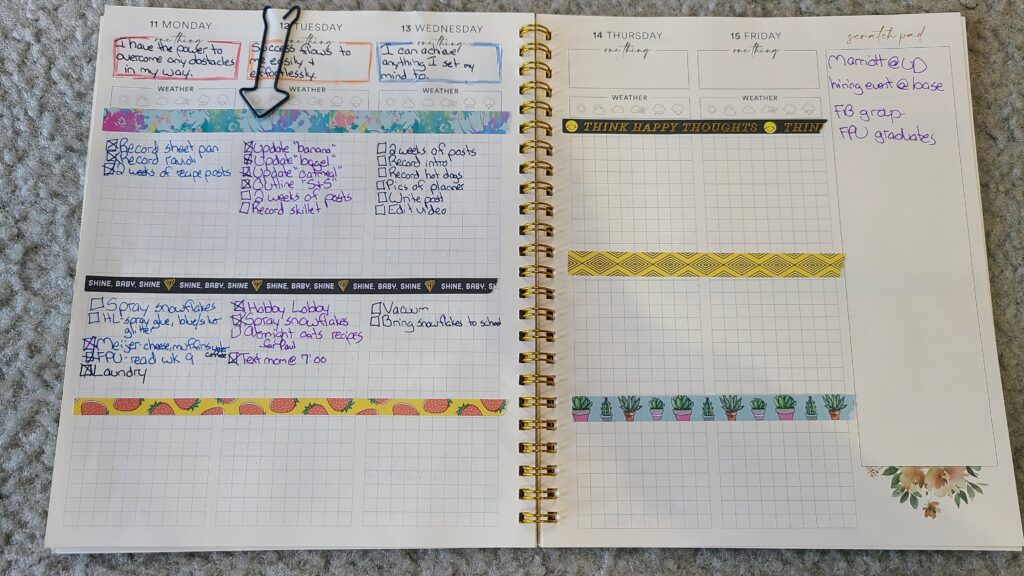 11 MONDAY
one thing
I have the power to
overcome any obstacles
in my way.
WEATHER
12 TUESDAY
one thing
Success flows to
me easily &
effortlessly.
WEATHER
13 WEDNESDAY
one thing
I can achieve
anything I set my
mind to.
WEATHER
Record sheet pan
Record
2 weeks of recipe posts
Update "banana"
Update "bagel"
Update "oatmeal"
Outline "S+S"
2 weeks of posts
Record skillet
2 weeks of posts
Record intro
Record hot dogs
Pics of planner
Write post
Edit video
SHINE, BABY, SHINE SHINE, BABY, SHINE SHINE, BABY, SHINE SHINE, BABY, SHINE SHINE, BABY, S
Spray snowflakes
HL- spray glue, blue/silver
glitter
Meijer cheese, muffins
coffee
FPU- read wk 9
Laundry
Hobby Lobby
Spray snowflakes
Overnight oats recipes
for Paul
Text mom @ 7:00
Vacuum
Bring snowflakes to school
14 THURSDAY
one thing
WEATHER
15 FRIDAY
one thing
WEATHER
THINK HAPPY THOUGHTS THIN
scratch pad
Marriott @ UD
hiring event @ base
FB group-
FPU graduates